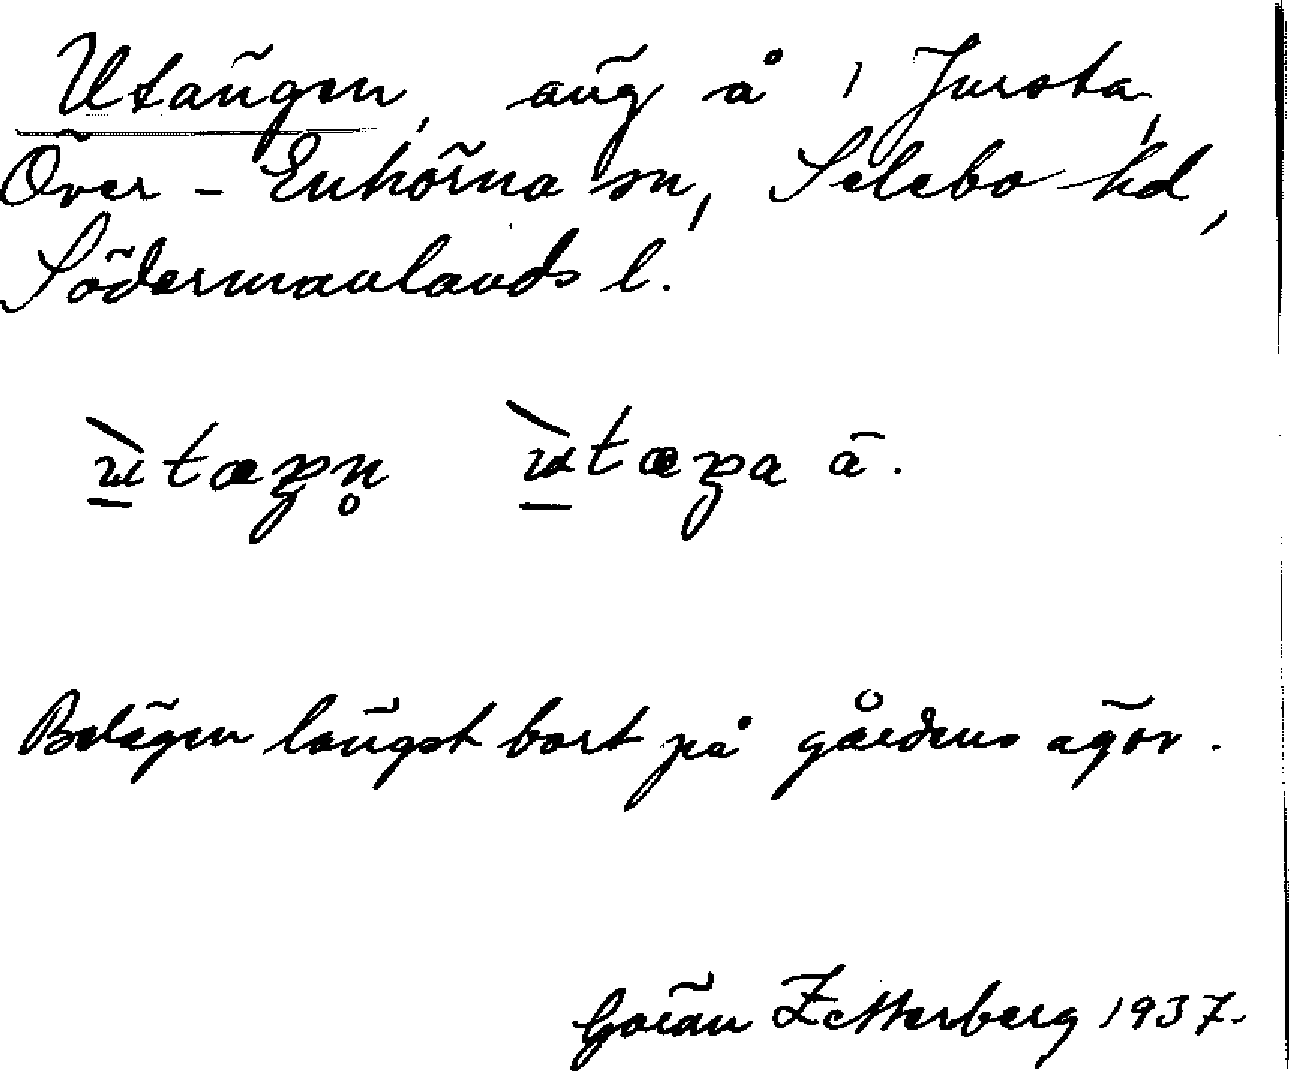 Utängen, äng å i Jursta,
Över-Enhörna sn, Selebo hd,
Södermanlands l.
ùtæŋn̥ ùtæŋa ä.
Belägen längst bort på gårdens ägor.
Göran Zetterberg 1937.